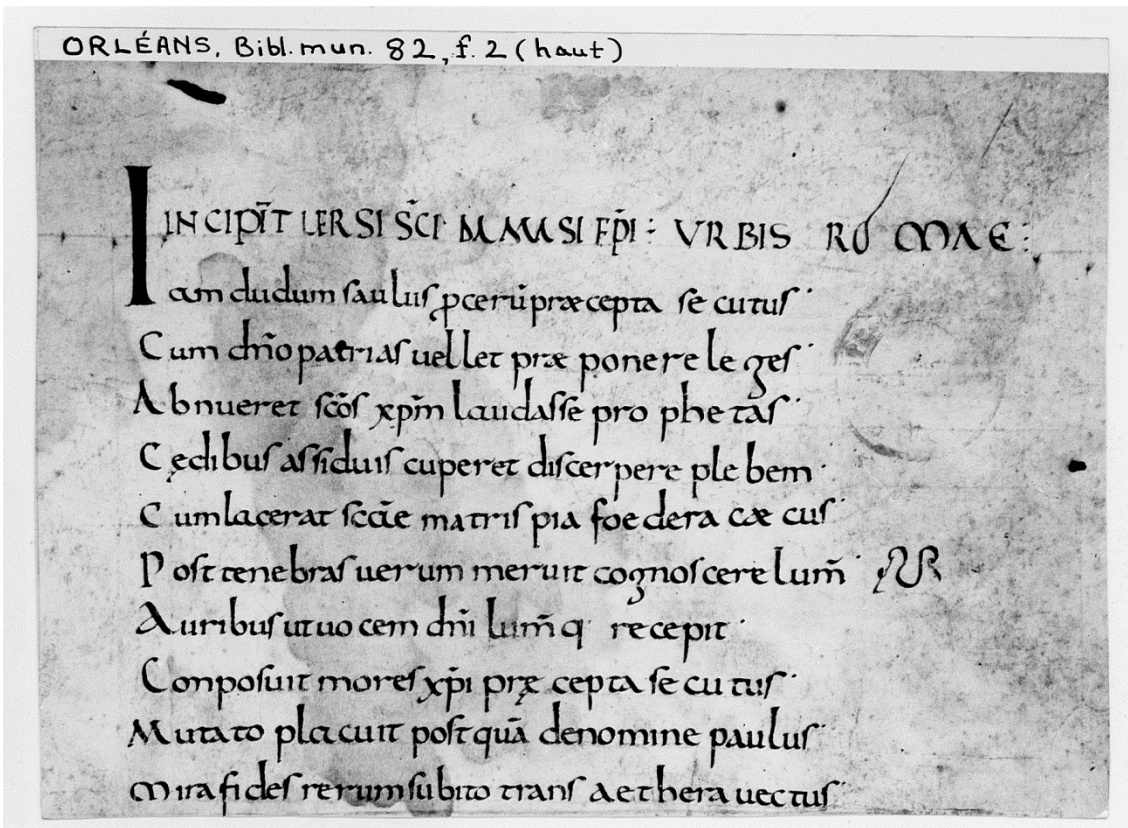 ORLÉANS, Bibl. mun. 82, f. 2 (haut)
INCIPIT̄ UERSI S̄CI DAMASI EP̄I : URBIS ROMAE :
Iam dudum saulus ꝓcerū præcepta secutus
Cum dn̄o patrias uellet præponere leges
Abnueret sc̄os xp̄m laudasse prophetas
Cędibus assiduis cuperet discerpere plebem
Cum lacerat sc̄ae matris pia foedera cæcus
Post tenebras uerum meruit cognoscere lum̄
Auribus ut uocem dn̄i lum̄ q· recepit
Conposuit mores xp̄i pręcepta secutus
Mutato placuit postquā de nomine paulus
Mira fides rerum subito trans aethera uectus